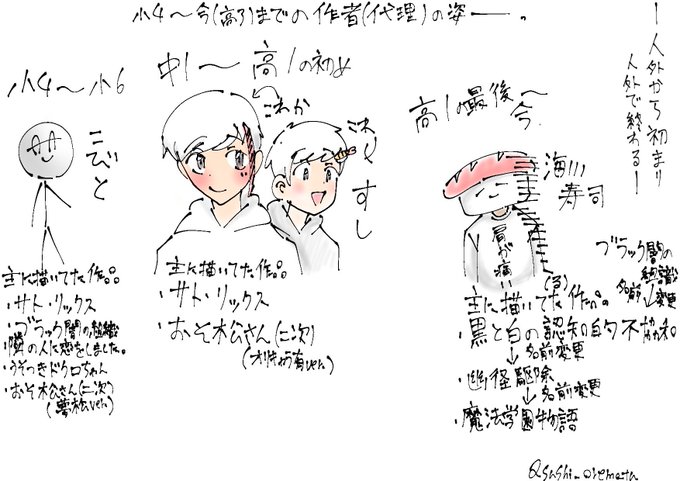 小4〜今(高3)までの作者(代理)の姿ー。
ー人外から初まり
人外で終わるー
小4〜小6
こびと
主に描いてた作品
・サト・リックス
・ブラック闇の組織
・隣の人に恋をしました。
・うそつきドクロちゃん
・おそ松さん(二次)
(夢松ver)
中1〜高1の初め
これか
これ
すし
主に描いてた作品
・サト・リックス
・おそ松さん(二次)
高1の最後〜
今
海川
寿司
肩が痛い
主に描いてた(る)作品
・黒と白の認知的不協和
↓名前変更
・幽径駆除
↓名前変更
・魔法学園物語
ブラック闇の
組織
↓
名前変更